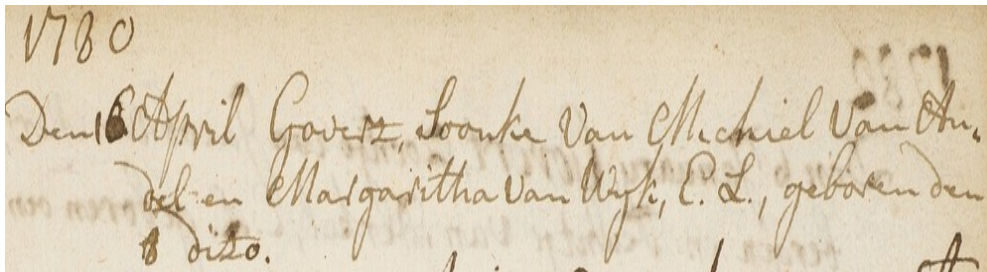 1780
Den 16 April Govert, Soontie Van Michiel Van An=
del en Margaritha van Wyk, E. L., geboren den
8 dito.